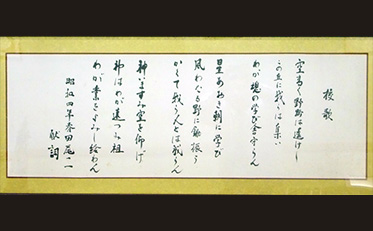 校歌
空青く野路は遠けし
この丘に我らは集い
わが魂の学び舎守らん
星あおき朝に学び
風わたる野に鋤振う
かくて我らの
神います み空を仰げ
神はわが遠つみ祖
わが業をよみし給わん
昭和四年春 田尾一一
献詞